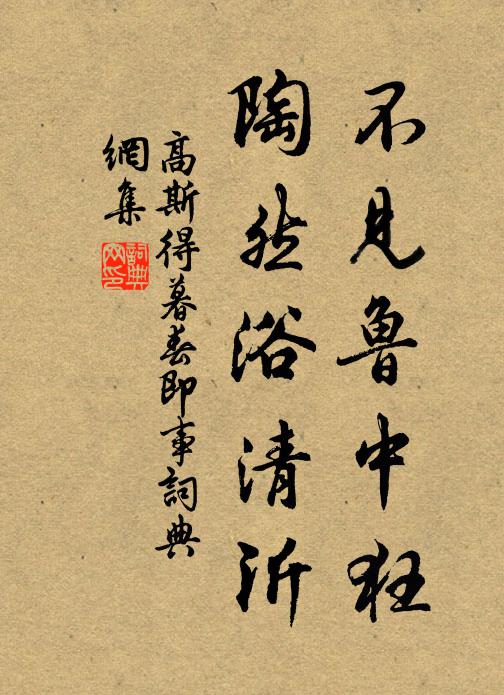 不見魯中狂
陶然浴清沂
高斯得暮春即事詞典
網集
詞典網印